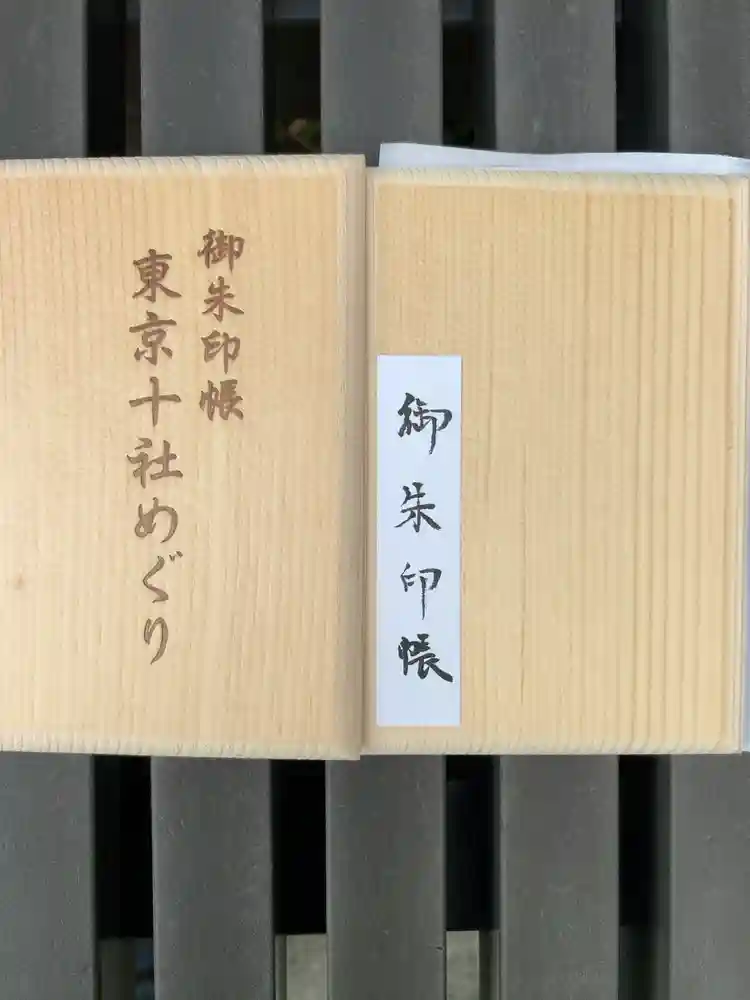 御朱印帳
東京十社めぐり
御朱印帳